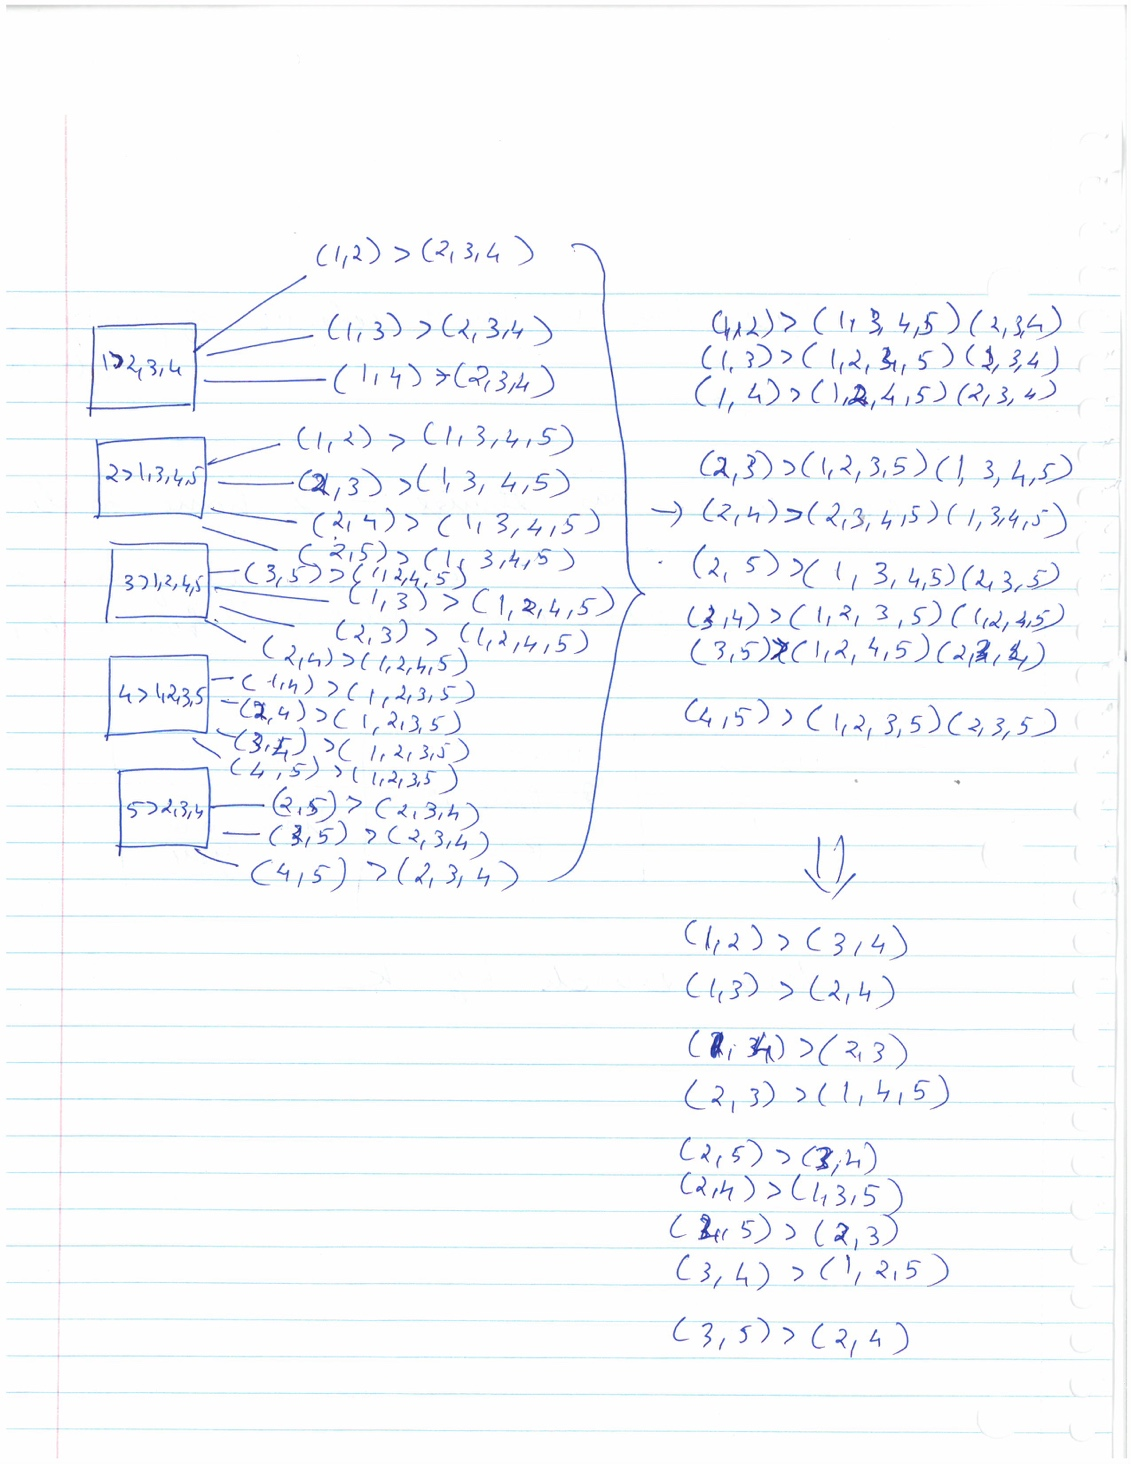 (1,2) > (2,3,4)
1>2,3,4
(1,3) > (2,3,4)
(1,4) > (2,3,4)
2>1,3,4,5
(1,2) > (1,3,4,5)
(2,3) > (1,3,4,5)
(2,4) > (1,3,4,5)
(2,5) > (1,3,4,5)
3>1,2,4,5
(3,5) > (1,2,4,5)
(1,3) > (1,2,4,5)
(2,3) > (1,2,4,5)
(2,4) > (1,2,4,5)
4>1,2,3,5
(1,4) > (1,2,3,5)
(2,4) > (1,2,3,5)
(3,4) > (1,2,3,5)
(4,5) > (1,2,3,5)
5>2,3,4
(2,5) > (2,3,4)
(3,5) > (2,3,4)
(4,5) > (2,3,4)
(1,2) > (1,3,4,5) (2,3,4)
(1,3) > (1,2,4,5) (2,3,4)
(1,4) > (1,2,4,5) (2,3,4)
(2,3) > (1,2,3,5) (1,3,4,5)
→ (2,4) > (2,3,4,5) (1,3,4,5)
(2,5) > (1,3,4,5) (2,3,5)
(3,4) > (1,2,3,5) (1,2,4,5)
(3,5) > (1,2,4,5) (2,3,4)
(4,5) > (1,2,3,5) (2,3,5)
⇓
(1,2) > (3,4)
(1,3) > (2,4)
(1,4) > (2,3)
(2,3) > (1,4,5)
(2,5) > (3,4)
(2,4) > (1,3,5)
(4,5) > (2,3)
(3,4) > (1,2,5)
(3,5) > (2,4)